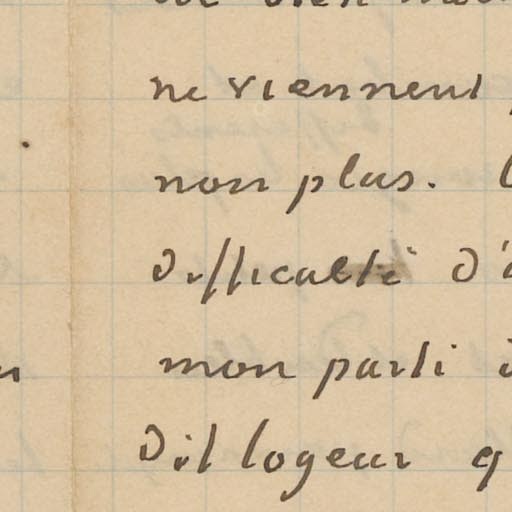 ne viennent
non plus.
difficulté d'
mon parti
dit logeur q